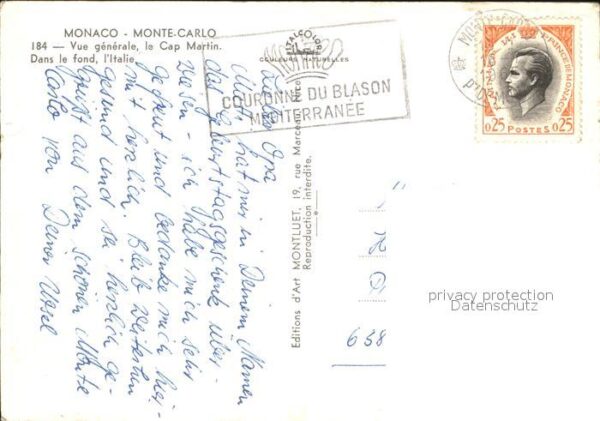 MONACO - MONTE-CARLO
184 — Vue générale, le Cap Martin.
Dans le fond, l'Italie.
COULEURS NATURELLES
COURONNE DU BLASON
MÉDITERRANÉE
PRINCIPAUTÉ DE MONACO
0,25 POSTES 0,25
Lieber Opa
Mutti hat mir in Deinem Namen
das Geburtstagsgeschenk über-
wiesen - ich habe mich sehr
gefreut und bedanke mich hier-
mit herzlich. Bleib weiterhin
gesund und sei herzlich ge-
grüßt aus dem schönen Monte
Carlo von Deiner Ursel
Editions d'Art MONTLUET, 19, rue Marceau, Nice
Reproduction interdite.
658
privacy protection
Datenschutz